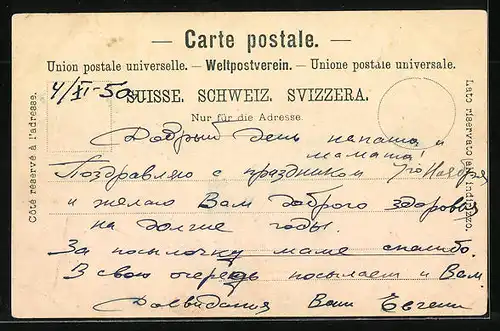 — Carte postale. —
Union postale universelle. — Weltpostverein. — Unione postale universale.
4/XI-50
SUISSE. SCHWEIZ. SVIZZERA.
Nur für die Adresse.
Côté réservé à l'adresse.
Lato riservato all'indirizzo.
Добрый день папаша и
мамаша!
Поздравляю с праздником 7го Ноября
и желаю Вам доброго здоровья
на долгие годы.
За посылочку маме спасибо.
В свою очередь посылаем и Вам.
Досвидания Ваш Евгений